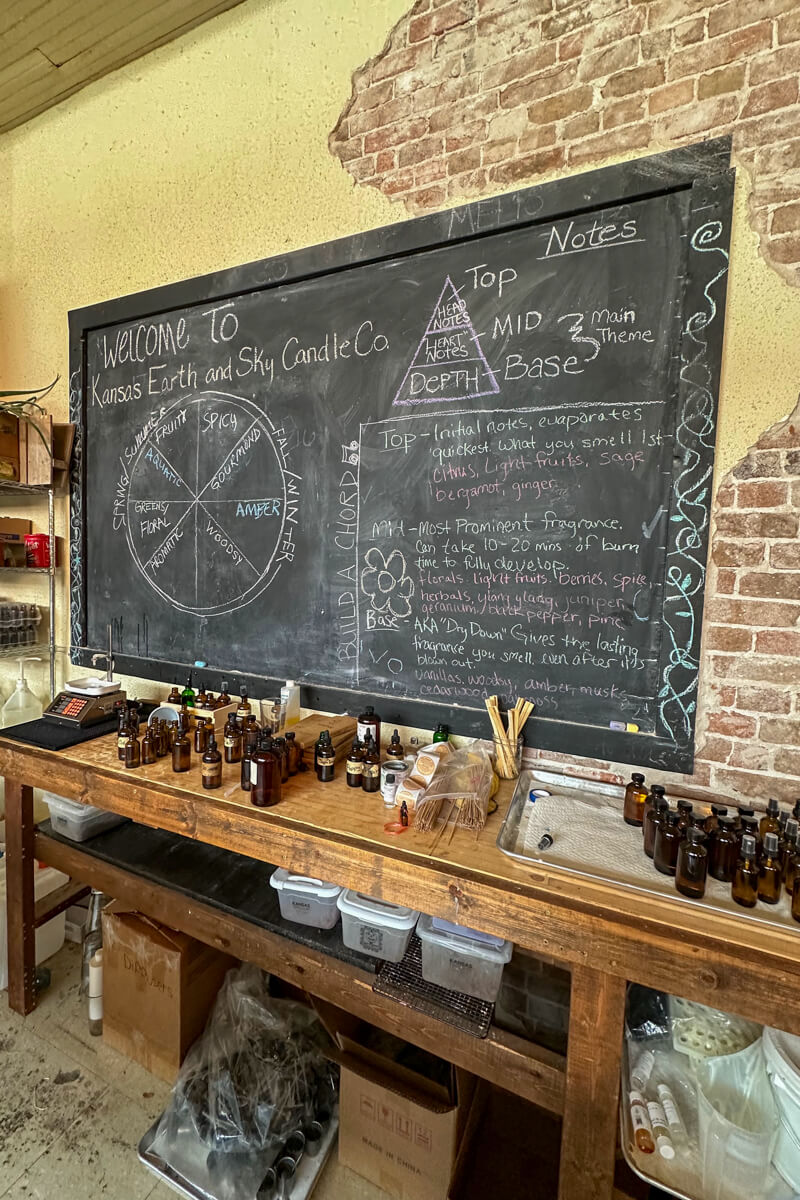 "WELCOME TO
Kansas Earth and Sky Candle Co.
SPRING/Summer
FALL/WINTER
FRUITY
SPICY
AQUATIC
GOURMOND
GREENS/
FLORAL
AMBER
AROMATIC
WOODSY
Notes
Top
HEAD
NOTES
MID
"HEART"
NOTES
DePTH
Base
Main
Theme
BUILD A CHORD
Top - Initial notes, evaporates
quickest. What you smell 1st
citrus, Light fruits, sage
bergamot, ginger
Mid - Most Prominent fragrance.
Can take 10-20 mins of burn
time to fully develop.
florals. light fruits. berries, spice,
herbals, ylang ylang, juniper,
geranium, black pepper, pine
Base -
AKA "Dry Down" Gives the lasting
fragrance you smell even after it's
blown out.
vanillas, woodsy, amber, musks
cedarwood
Diffusers
KANSAS
KANSAS
MADE IN CHINA